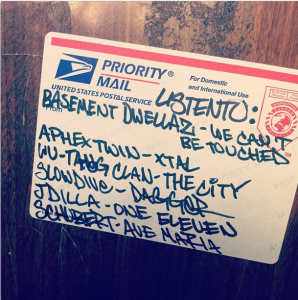 PRIORITY®
MAIL
UNITED STATES POSTAL SERVICE
For Domestic
and International Use
LISTEN TO:
BASEMENT DWELLAZ - WE CAN'T
BE TOUCHED
From
APHEX TWIN - XTAL
WU-TANG CLAN - THE CITY
SLOWDIVE - DAGGER
J DILLA - ONE ELEVEN
SCHUBERT - AVE MARIA